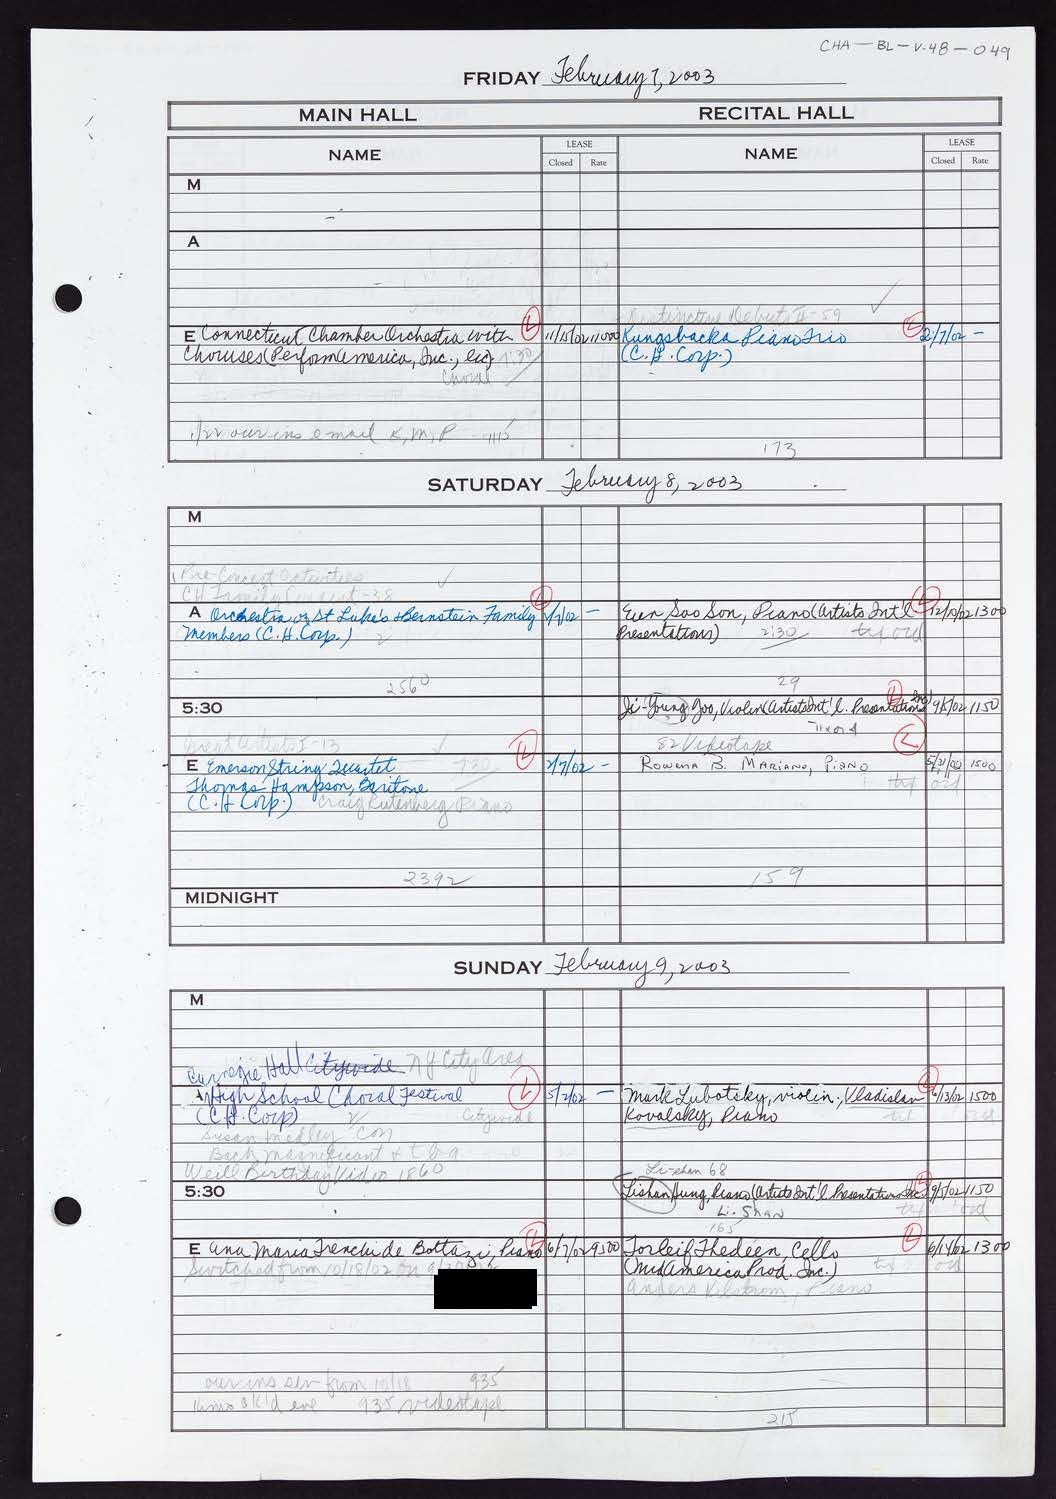 CHA-BL-V.48-049
FRIDAY February 7, 2003
MAIN HALL RECITAL HALL
NAME LEASE Closed Rate NAME LEASE Closed Rate
M
A
Distinctive Debuts II-59
E Connecticut Chamber Orchestra with L 11/15/02 11000 Kungsbacka Piano Trio L 2/7/02 -
Choruses (PerformAmerica, Inc., 7:30 (C.H. Corp.)
Choral
1/22 our ins email K, M, P 1115
173
SATURDAY February 8, 2003
M
Pre-Concert activities
CH Family Concert-38
A Orchestra of St Luke's & Bernstein Family L 2/7/02 - Eun Soo Son, Piano (Artists Int'l L 12/10/02 1300
Members (C.H. Corp.) Presentations) 2:30 tix ord
2560 29
5:30 Ji-Young Joo, Violin (Artists Int'l. Presentations Inc) L 9/5/02 1150
Tix ord
Great Artists I-13 82 Videotape
E Emerson String Quartet 7:30 L 2/7/02 - Rowena B. Mariano, Piano L 5/21/02 1500
Thomas Hampson, Baritone tix ord
(C.H. Corp.) Craig Rutenberg Piano
2392 159
MIDNIGHT
SUNDAY February 9, 2003
M
Carnegie Hall Citywide NY City Area
A High School Choral Festival L 5/2/02 - Mark Lubotsky, violin; Vladislav L 6/13/02 1500
(C.H. Corp) Citywide Kovalsky, Piano tix ord
Susan Medley Con
Bach Magnificant & tba
Weill Birthday Vid in 1860 Li-shan 68
5:30 Lishan Hung, Piano (Artists Int'l Presentations Inc) L 9/5/02 1150
Li-Shan tix ord
165
E Ana Maria Trenchi de Bottazzi, Piano L 6/7/02 9500 Torleif Thedéen, Cello L 6/14/02 1300
Switched from 10/18/02 on (MidAmerica Prod. Inc.) tix ord
Anders Kilström, Piano
our ins ser from 10/18 935
ok'd eve 935 videotape
215